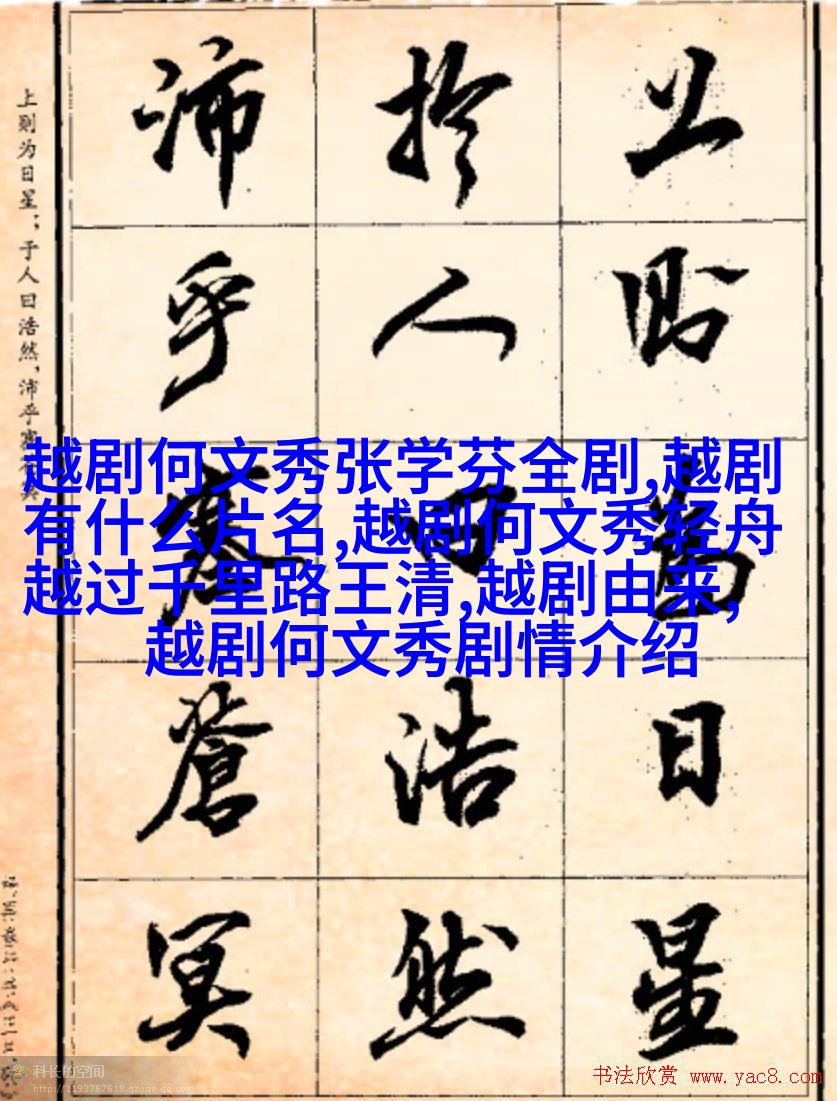 上則為日星
於人曰浩然
沛乎塞蒼冥
上则为日星；于人曰浩然，沛乎塞
越剧何文秀张学芬全剧,越剧
有什么片名,越剧何文秀轻舟
越过千里路王清,越剧由来,
越剧何文秀剧情介绍
科长的空间
http://1193767618.qzone.qq.com
书法欣赏 www.yac8.com